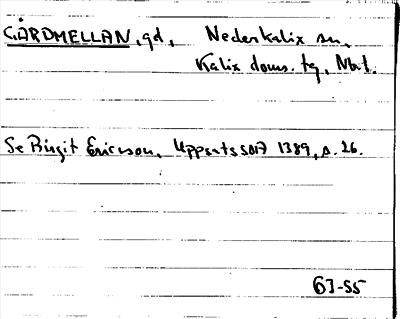 GÅRDMELLAN, gd, Nederkalix sn,
Kalix doms. tg, Nbt.
Se Birgit Ericson, Uppsats SOFI 1389, s. 26.
63-55